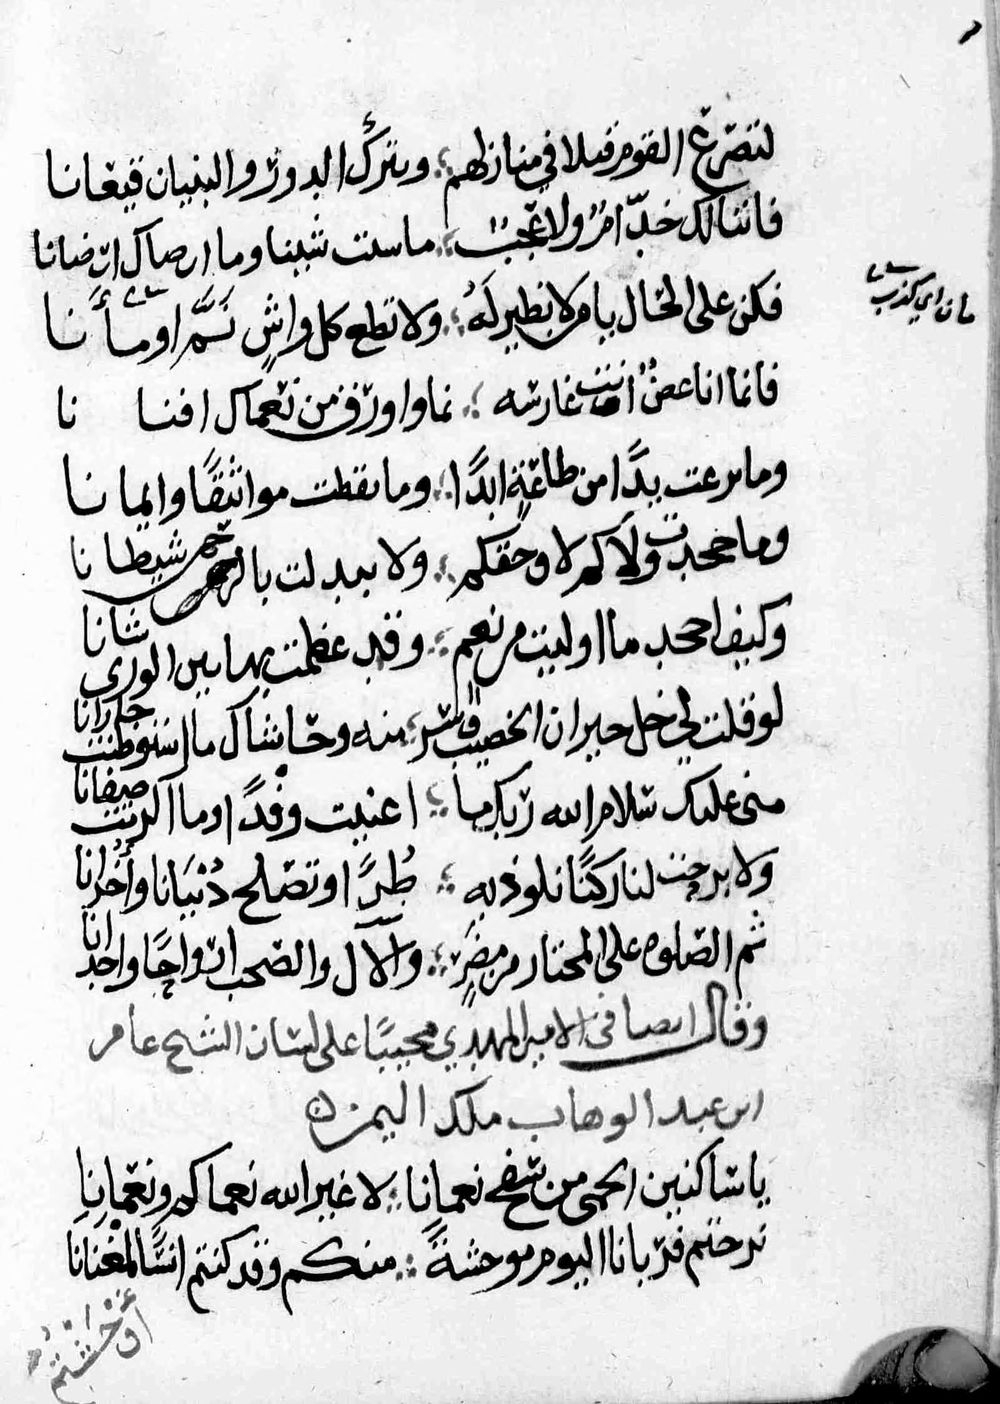 لتصرع القوم قتلا في منازلهم ؛ ويترك الدور والبنيان قيعانا
فانثنا لك خدّ امرٌ ولا عجبٌ ؛ ما ست شببنا وما ارضاك ارضانا
فكن على الحال يا من لا نظير لهُ ؛ ولا تطع كل واشٍ نَمَّ او مأنا
مان اي كذب
فانما انا غصنٌ انت غارسه ؛ نما واورق من نعماك افنانا
وما نزعت يدًا من طاعةٍ ابدًا ؛ وما نقضت مواثقًا وايمانا
وما جحدت ولاكم لا وحقكم ؛ ولا تبدلت بالرحمن شيطانا
وكيف اجحد ما اوليت من نعم ؛ وقد عظمت بها بين الورى شانا
لو قلت لي خل جيران الخصيب وسر ؛ منه وحاشاك ما استوطنت جازانا
مني عليك سلام الله زبكم ما ؛ اغنيت وفدًا وما اكرمت ضيفانا
ولا برحت لنا ركنًا نلوذ به ؛ طُرًّا وتصلح دُنيانا وأُخرانا
ثم الصلوه على المختار من مضرٍ ؛ والآل والصحب ازواجًا واخدانا
وقال ايضا في الامير المهدي مجيبًا على لسان الشيخ عامر
ابن عبد الوهاب ملك اليمن
يا ساكنين الحمى من سفح نعمانا ؛ لا غير الله نعماكم ونعمانا
نزحتم فربانا اليوم موحشةً ؛ منكم وقد كنتم انسًا لمغنانا
أوحشتم